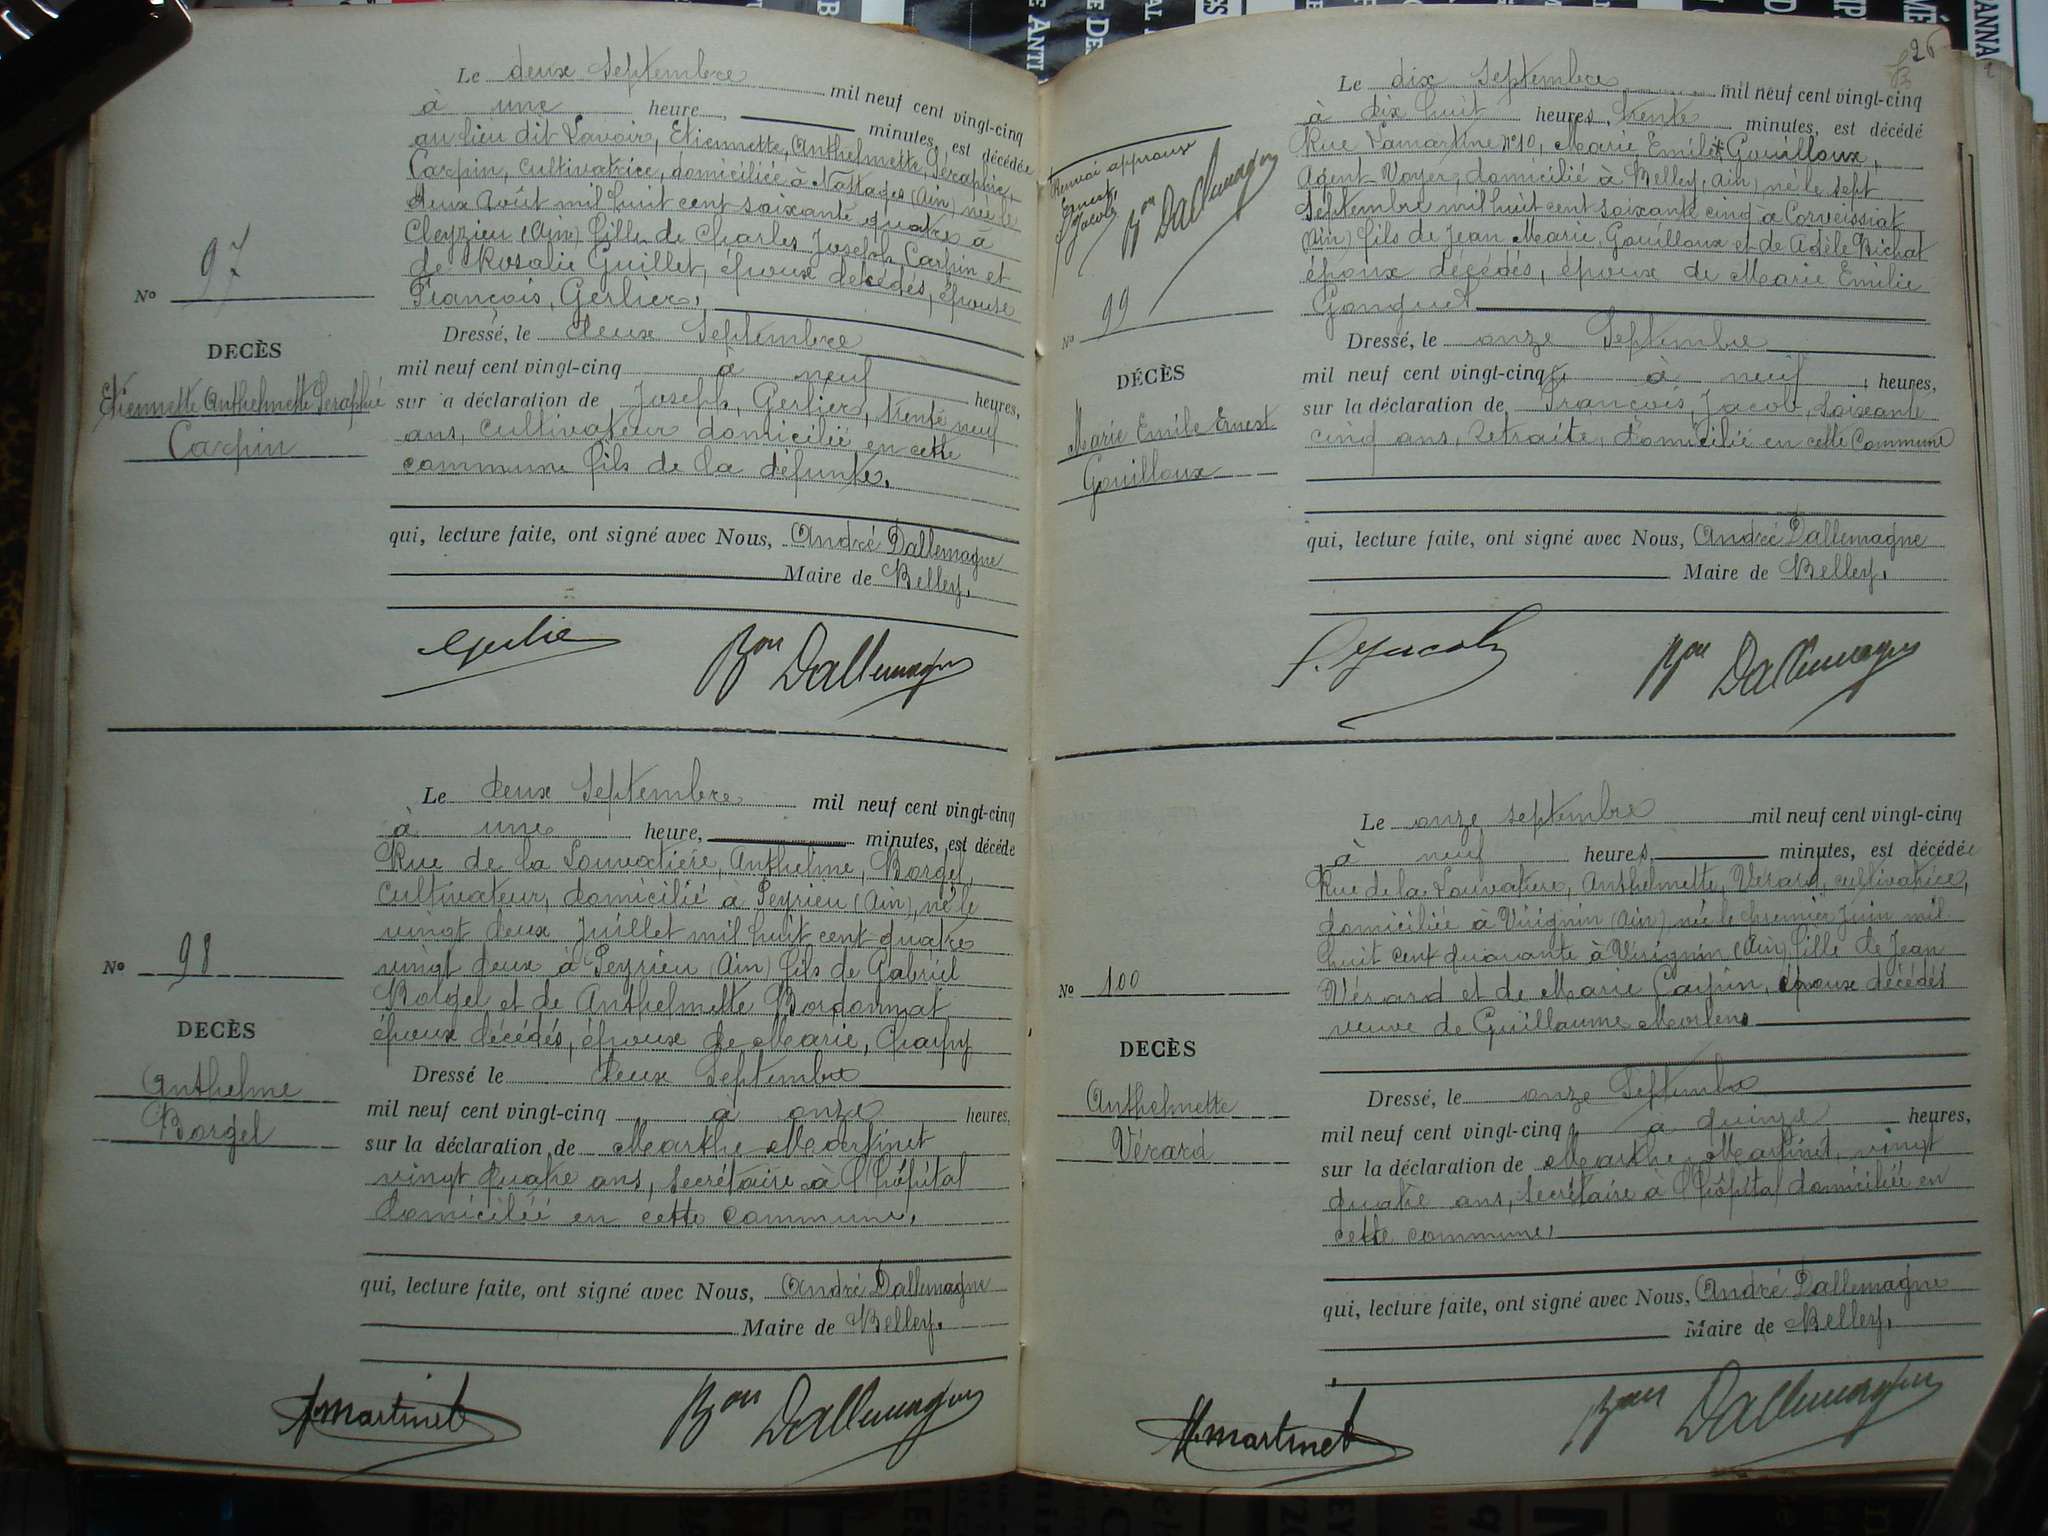 Le deux Septembre mil neuf cent vingt-cinq
à une heure, minutes, est décédée
au lieu dit Lavoir, Etiennette, Anthelmette, Séraphie,
Carpin, cultivatrice, domiciliée à Nattages (Ain) née le
deux Août mil huit cent soixante quatre à
Cleyzieu (Ain) fille de Charles Joseph Carpin et
de Rosalie Guillet, époux décédés, épouse
François, Gerlier,
No 97
DECÈS
Etiennette Anthelmette Séraphie
Carpin
Dressé, le deux Septembre
mil neuf cent vingt-cinq à neuf heures,
sur a déclaration de Joseph, Gerlier, trente neuf
ans, cultivateur domicilié en cette
commune fils de la défunte.
qui, lecture faite, ont signé avec Nous, André Dallemagne
Maire de Belley.
Bon Dallemagne
Le deux Septembre mil neuf cent vingt-cinq
à une heure, minutes, est décédé
Rue de la Louvatière, Anthelme, Borgel,
cultivateur, domicilié à Peyrieu (Ain), né le
vingt deux Juillet mil huit cent quatre
vingt deux à Peyrieu (Ain) fils de Gabriel
Borgel et de Anthelmette Bordonnat
époux décédés, époux de Marie, Chapuy
No 98
DECÈS
Anthelme
Borgel
Dressé le deux Septembre
mil neuf cent vingt-cinq à onze heures,
sur la déclaration de Marthe Martinet
vingt quatre ans, secrétaire à l'hôpital
domiciliée en cette commune.
qui, lecture faite, ont signé avec Nous, André Dallemagne
Maire de Belley.
Martinet
Bon Dallemagne
26
Le dix Septembre mil neuf cent vingt-cinq
à dix huit heures, trente minutes, est décédé
Rue Lamartine n°10, Marie Emile Gouilloux,
Agent-Voyer, domicilié à Belley, (Ain) né le sept
Septembre mil huit cent soixante cinq à Corveissiat
(Ain) fils de Jean Marie, Gouilloux et de Adèle Bichat
époux décédés, époux de Marie Emilie
Gonguet
Renvoi approuvé
Ernest
F. Jacob
Bon Dallemagne
No 99
DÉCÈS
Marie Emile Ernest
Gouilloux
Dressé, le onze Septembre
mil neuf cent vingt-cinq à neuf heures,
sur la déclaration de François, Jacob, Soixante
cinq ans, Retraité, domicilié en cette Commune
qui, lecture faite, ont signé avec Nous, André Dallemagne
Maire de Belley.
F. Jacob
Bon Dallemagne
Le onze septembre mil neuf cent vingt-cinq
à neuf heures, minutes, est décédée
Rue de la Louvatière, Anthelmette, Vérard, cultivatrice,
domiciliée à Virignin (Ain) née le premier Juin mil
huit cent quarante à Virignin (Ain) fille de Jean
Vérard et de Marie Carpin, époux décédés
veuve de Guillaume
No 100
DECÈS
Anthelmette
Vérard
Dressé, le onze Septembre
mil neuf cent vingt-cinq à quinze heures,
sur la déclaration de Marthe Martinet, vingt
quatre ans, secrétaire à l'hôpital domiciliée en
cette commune,
qui, lecture faite, ont signé avec Nous, André Dallemagne
Maire de Belley.
M. martinet
Bon Dallemagne